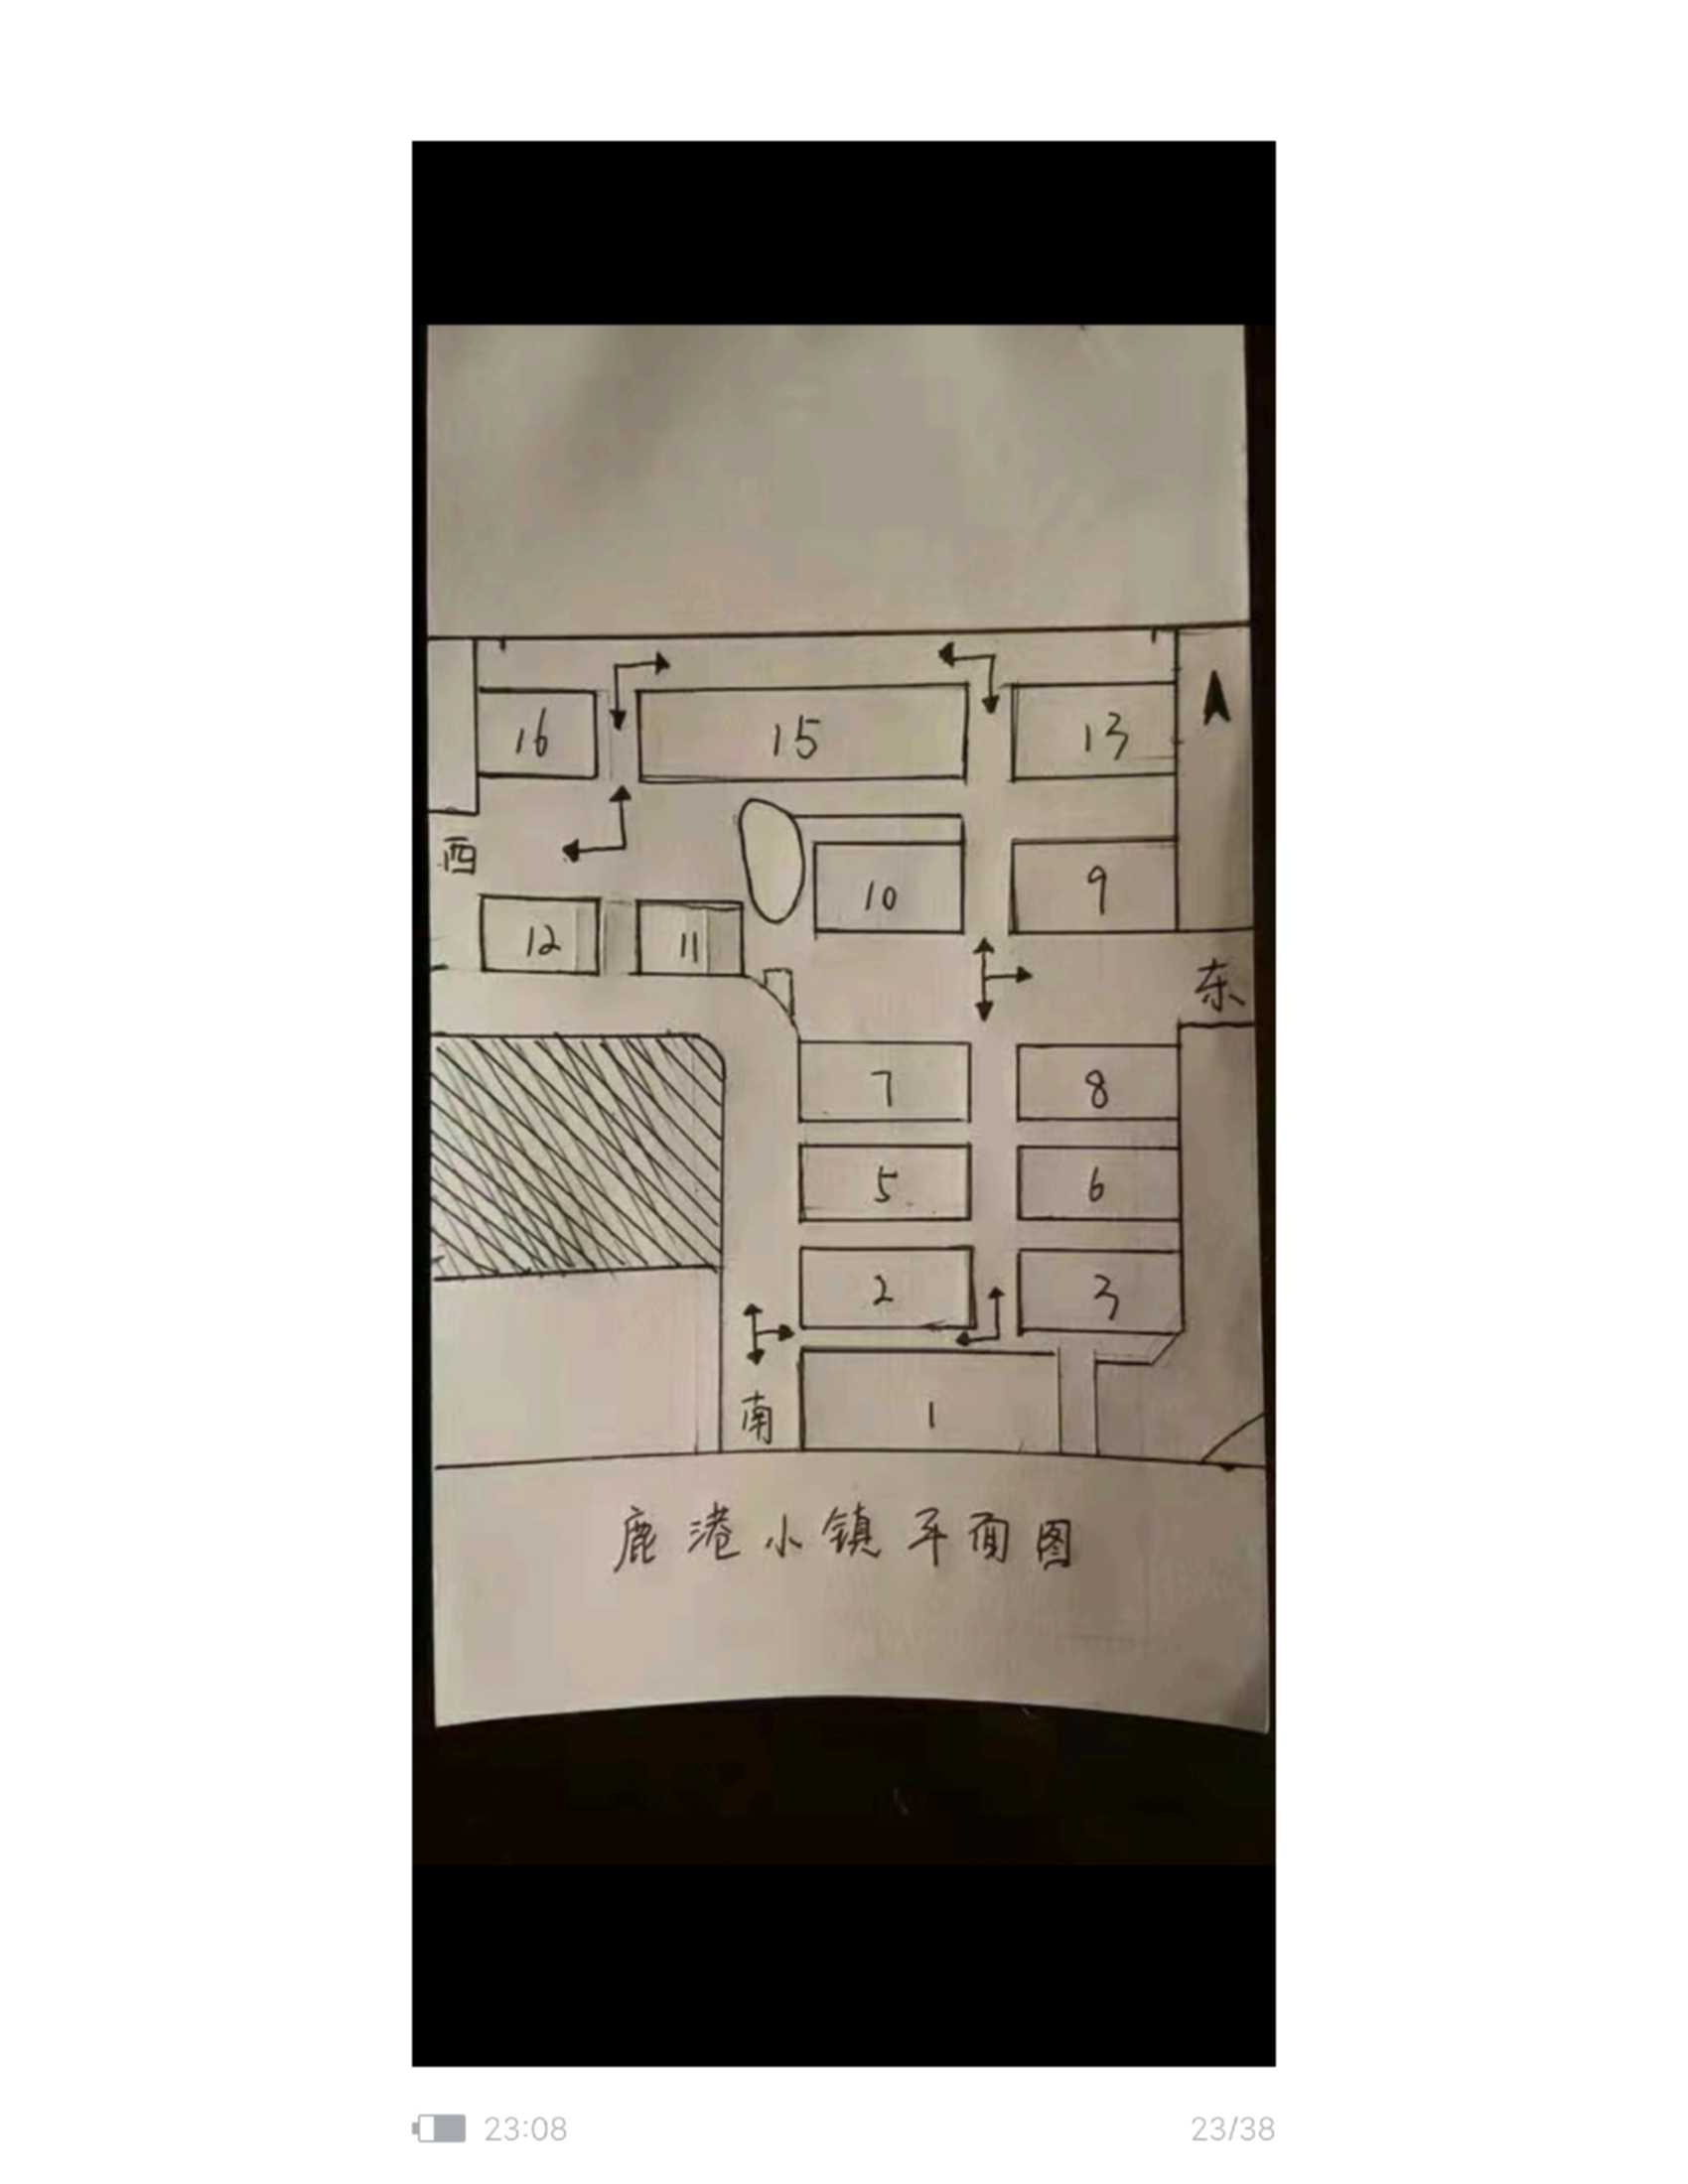 16 15 13
西
10 9
12 11
东
7 8
5 6
2 3
南 1
鹿港小镇平面图
23:08 23/38